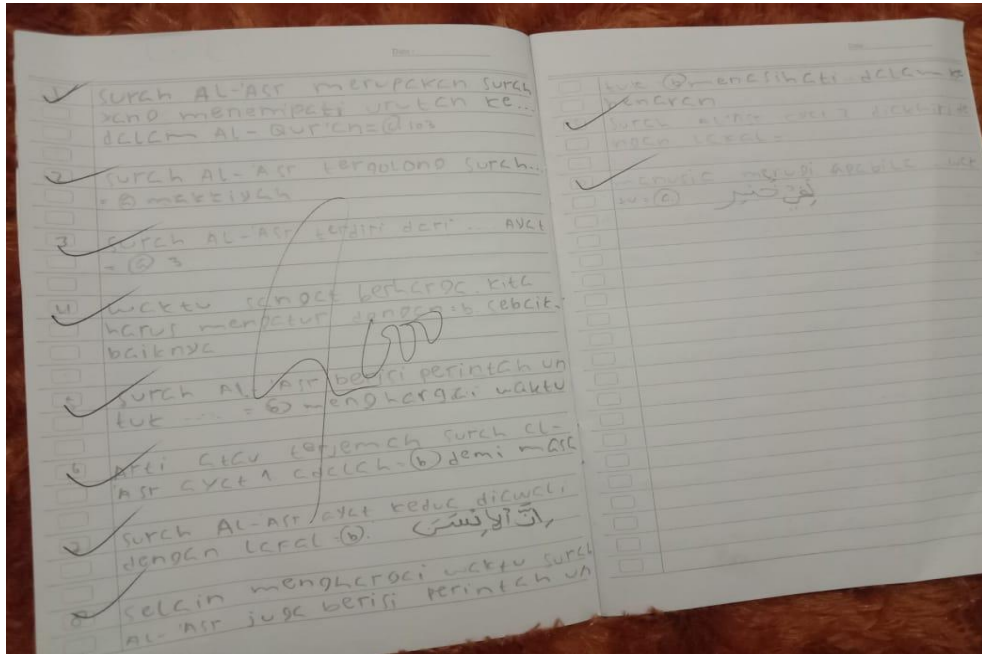 1 Surah AL-'Asr merupakan surah
yang menempati urutan ke...
dalam AL-Qur'an = 103
2 Surah AL-'Asr tergolong surah...
= makkiyah
3 Surah AL-'Asr terdiri dari ... AYat
= 3
4 waktu sangat berharga kita
harus mengatur dengan = b sebaik.
baiknya
5 Surah AL-'Asr berisi perintah un
tuk ..... = b) menghargai waktu
6 Arti atau terjemah surah al-
Asr ayat 1 adalah = (b) demi masa
7 Surah AL-Asr ayat kedua diawali
dengan lafal = (b). اِنَّ الْاِنْسٰنَ
8 selain menghargai waktu surah
AL-'Asr juga berisi perintah un
100
Date :
tuk (b) menasihati dalam ke
benaran
surah AL-'Asr ayat diakhiri de
ngan lafal =
manusia merugi apabila
لَفِيْ خُسْرٍ